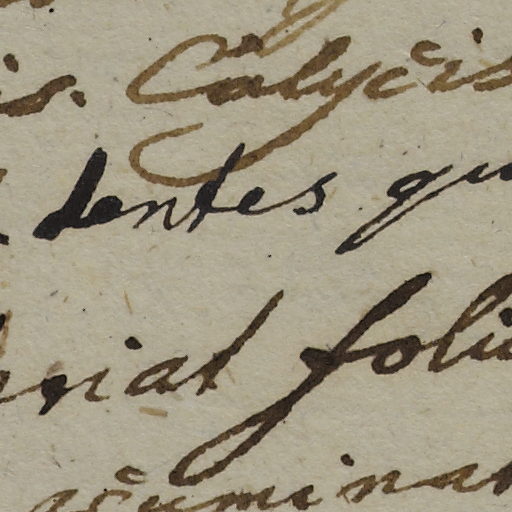 is. Calycis
dentes qu
eniat foliu
acuminat